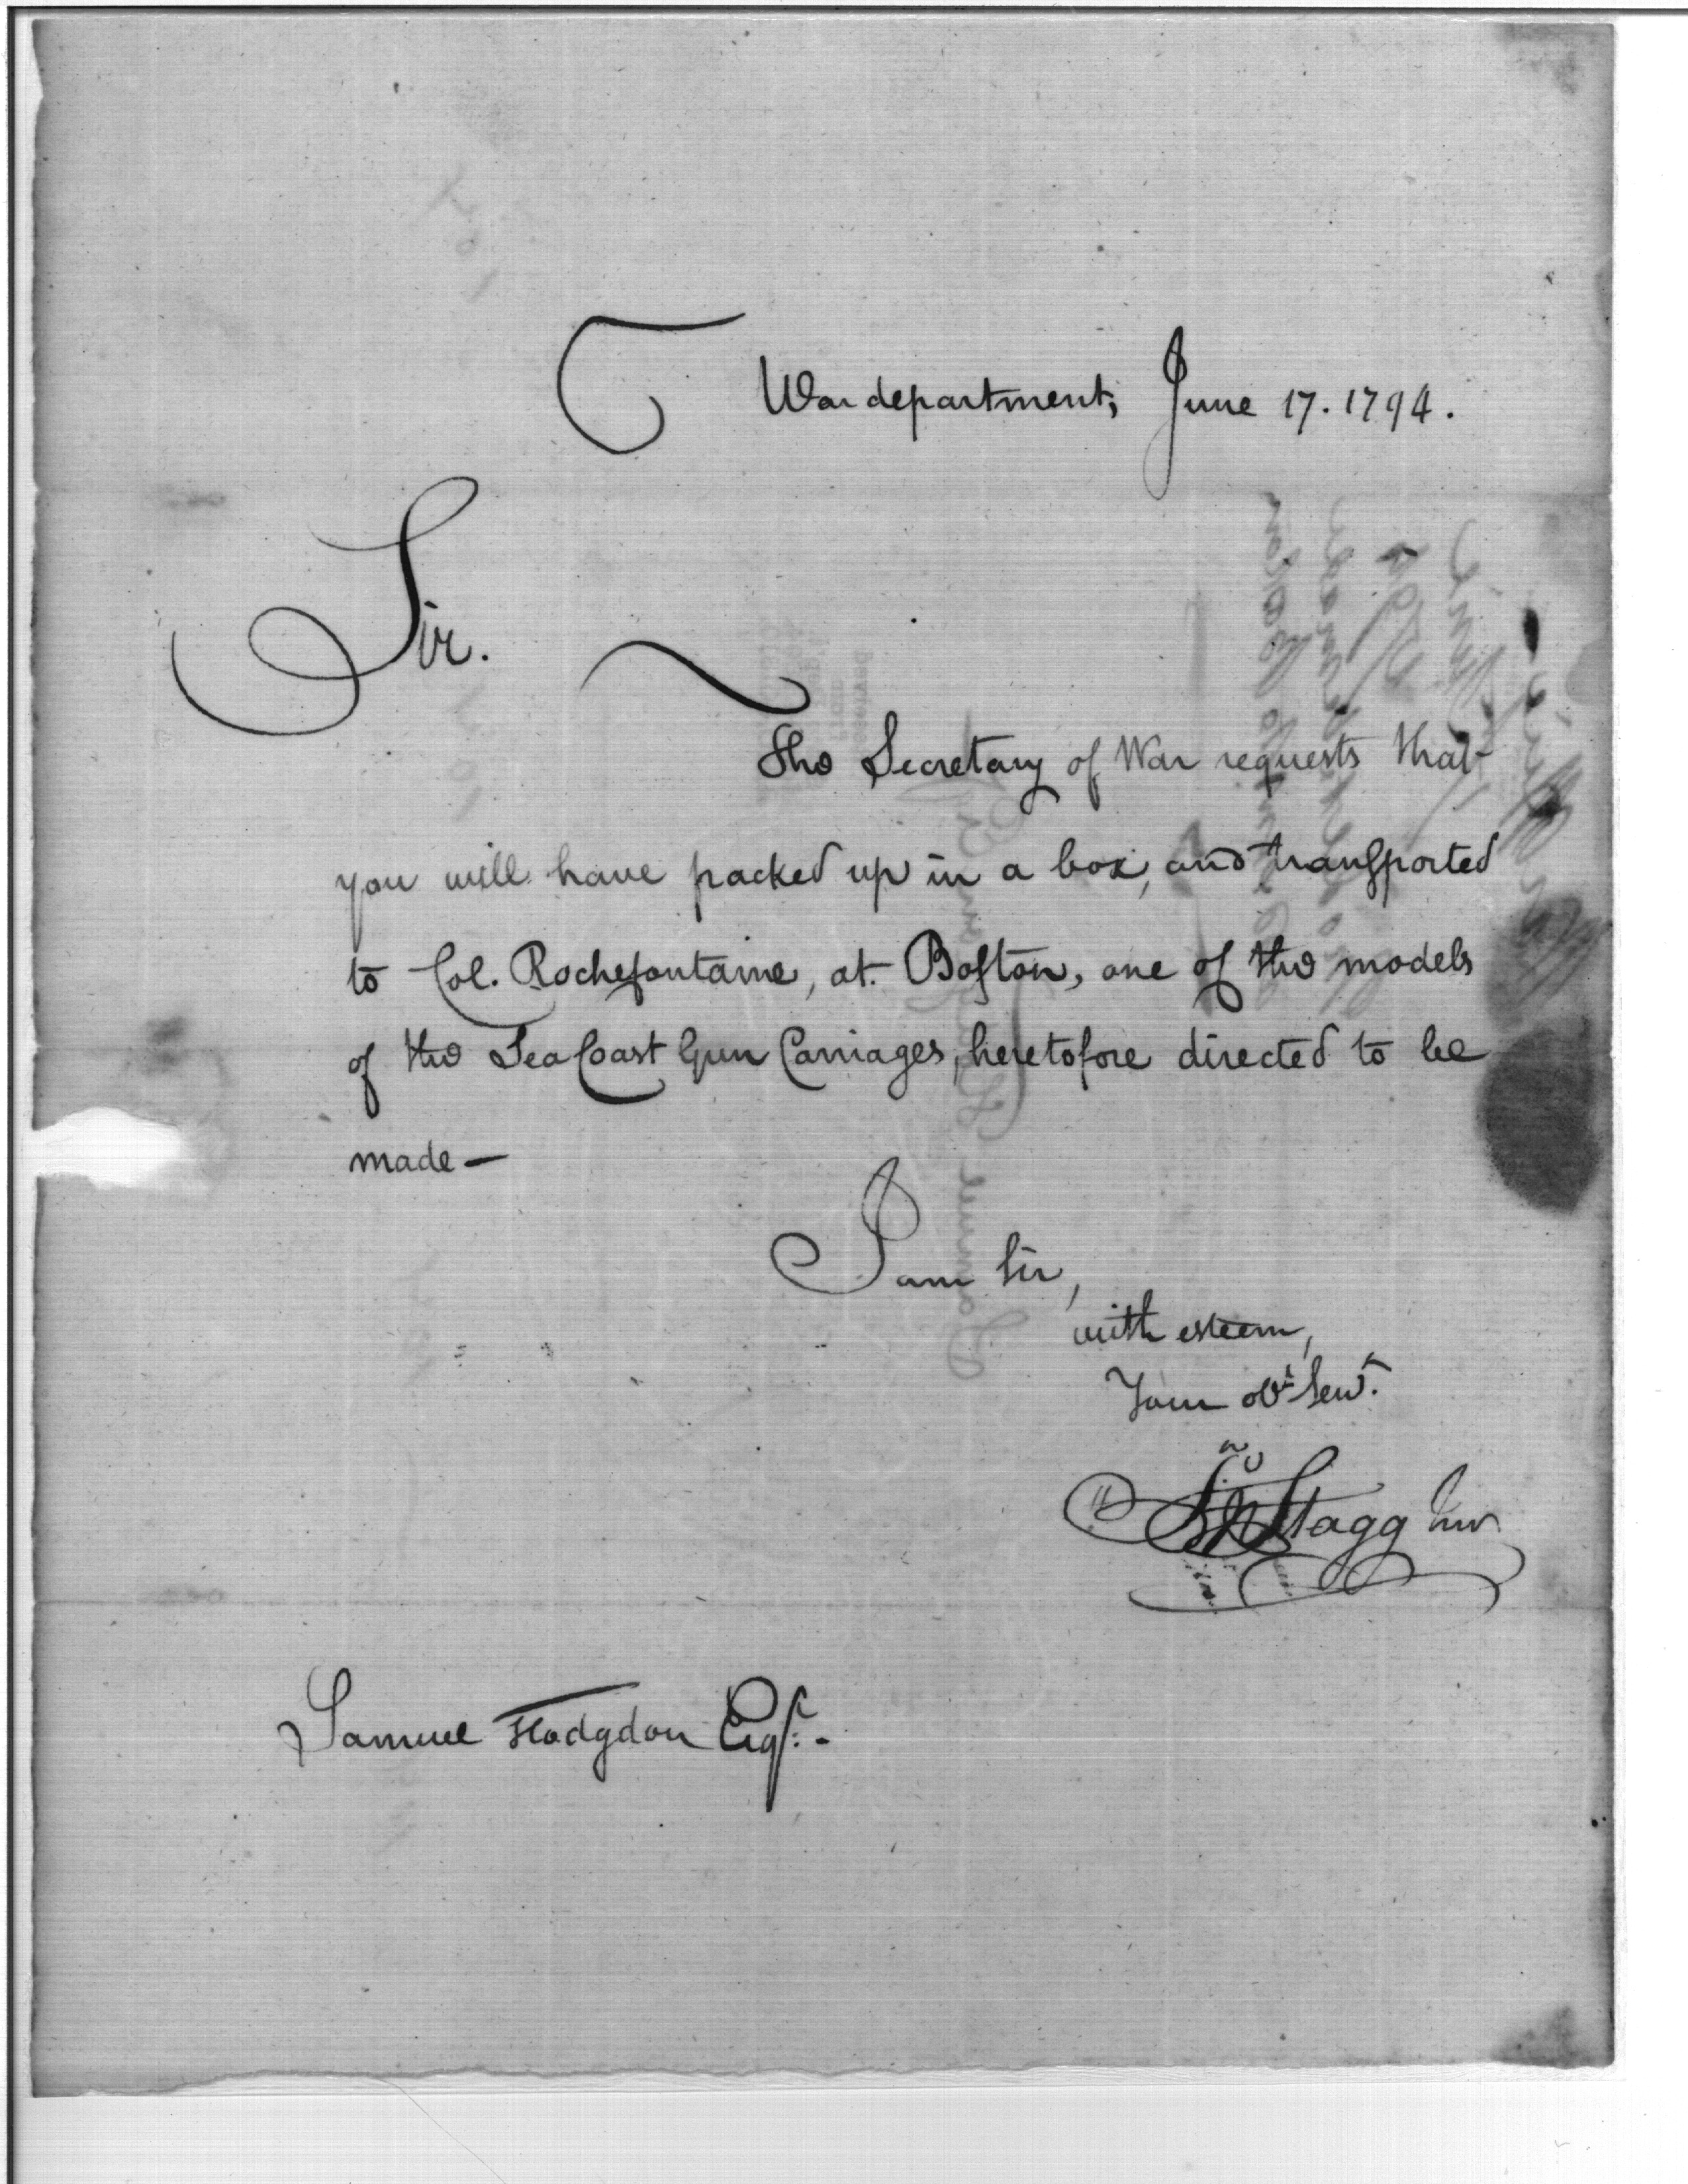 War department, June 17. 1794.
Sir.
The Secretary of War requests that
you will have packed up in a box, and transported
to Col. Rochefontaine, at Boston, one of the models
of the Sea Coast Gun Carriages, heretofore directed to be
made—
I am Sir,
with esteem,
Your obt Servt.
Jno Stagg Junr
Samuel Hodgdon Esqr.-